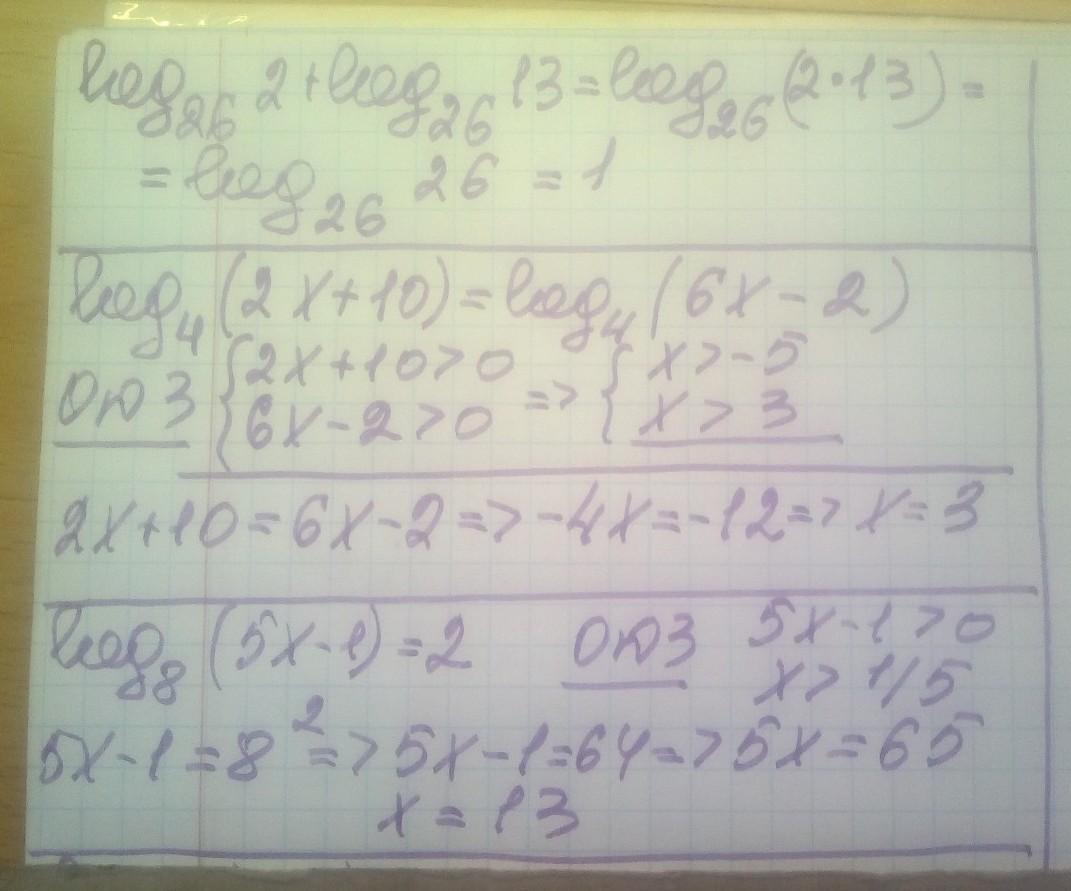 log₂₆ 2 + log₂₆ 13 = log₂₆ (2·13) =
= log₂₆ 26 = 1
log₄ (2x+10) = log₄ (6x-2)
ОДЗ { 2x+10>0 => { x>-5
{ 6x-2>0 { x>3
2x+10=6x-2 => -4x=-12 => x=3
log₈ (5x-1)=2 ОДЗ 5x-1>0
x>1/5
5x-1=8² => 5x-1=64 => 5x=65
x=13